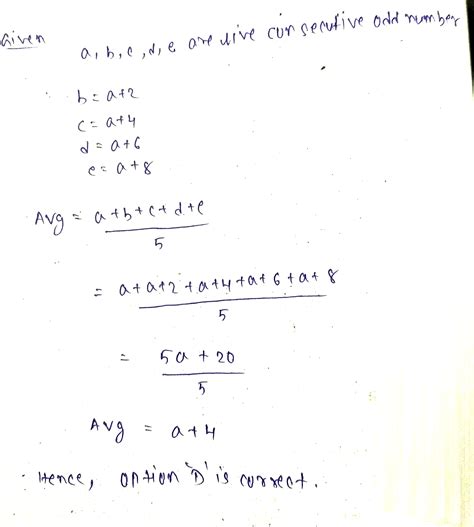 Given
a, b, c, d, e are five consecutive odd number
b = a+2
c = a+4
d = a+6
e = a+8
Avg = a+b+c+d+e
5
= a+a+2+a+4+a+6+a+8
5
= 5a+20
5
Avg = a+4
Hence, option 'D' is correct.